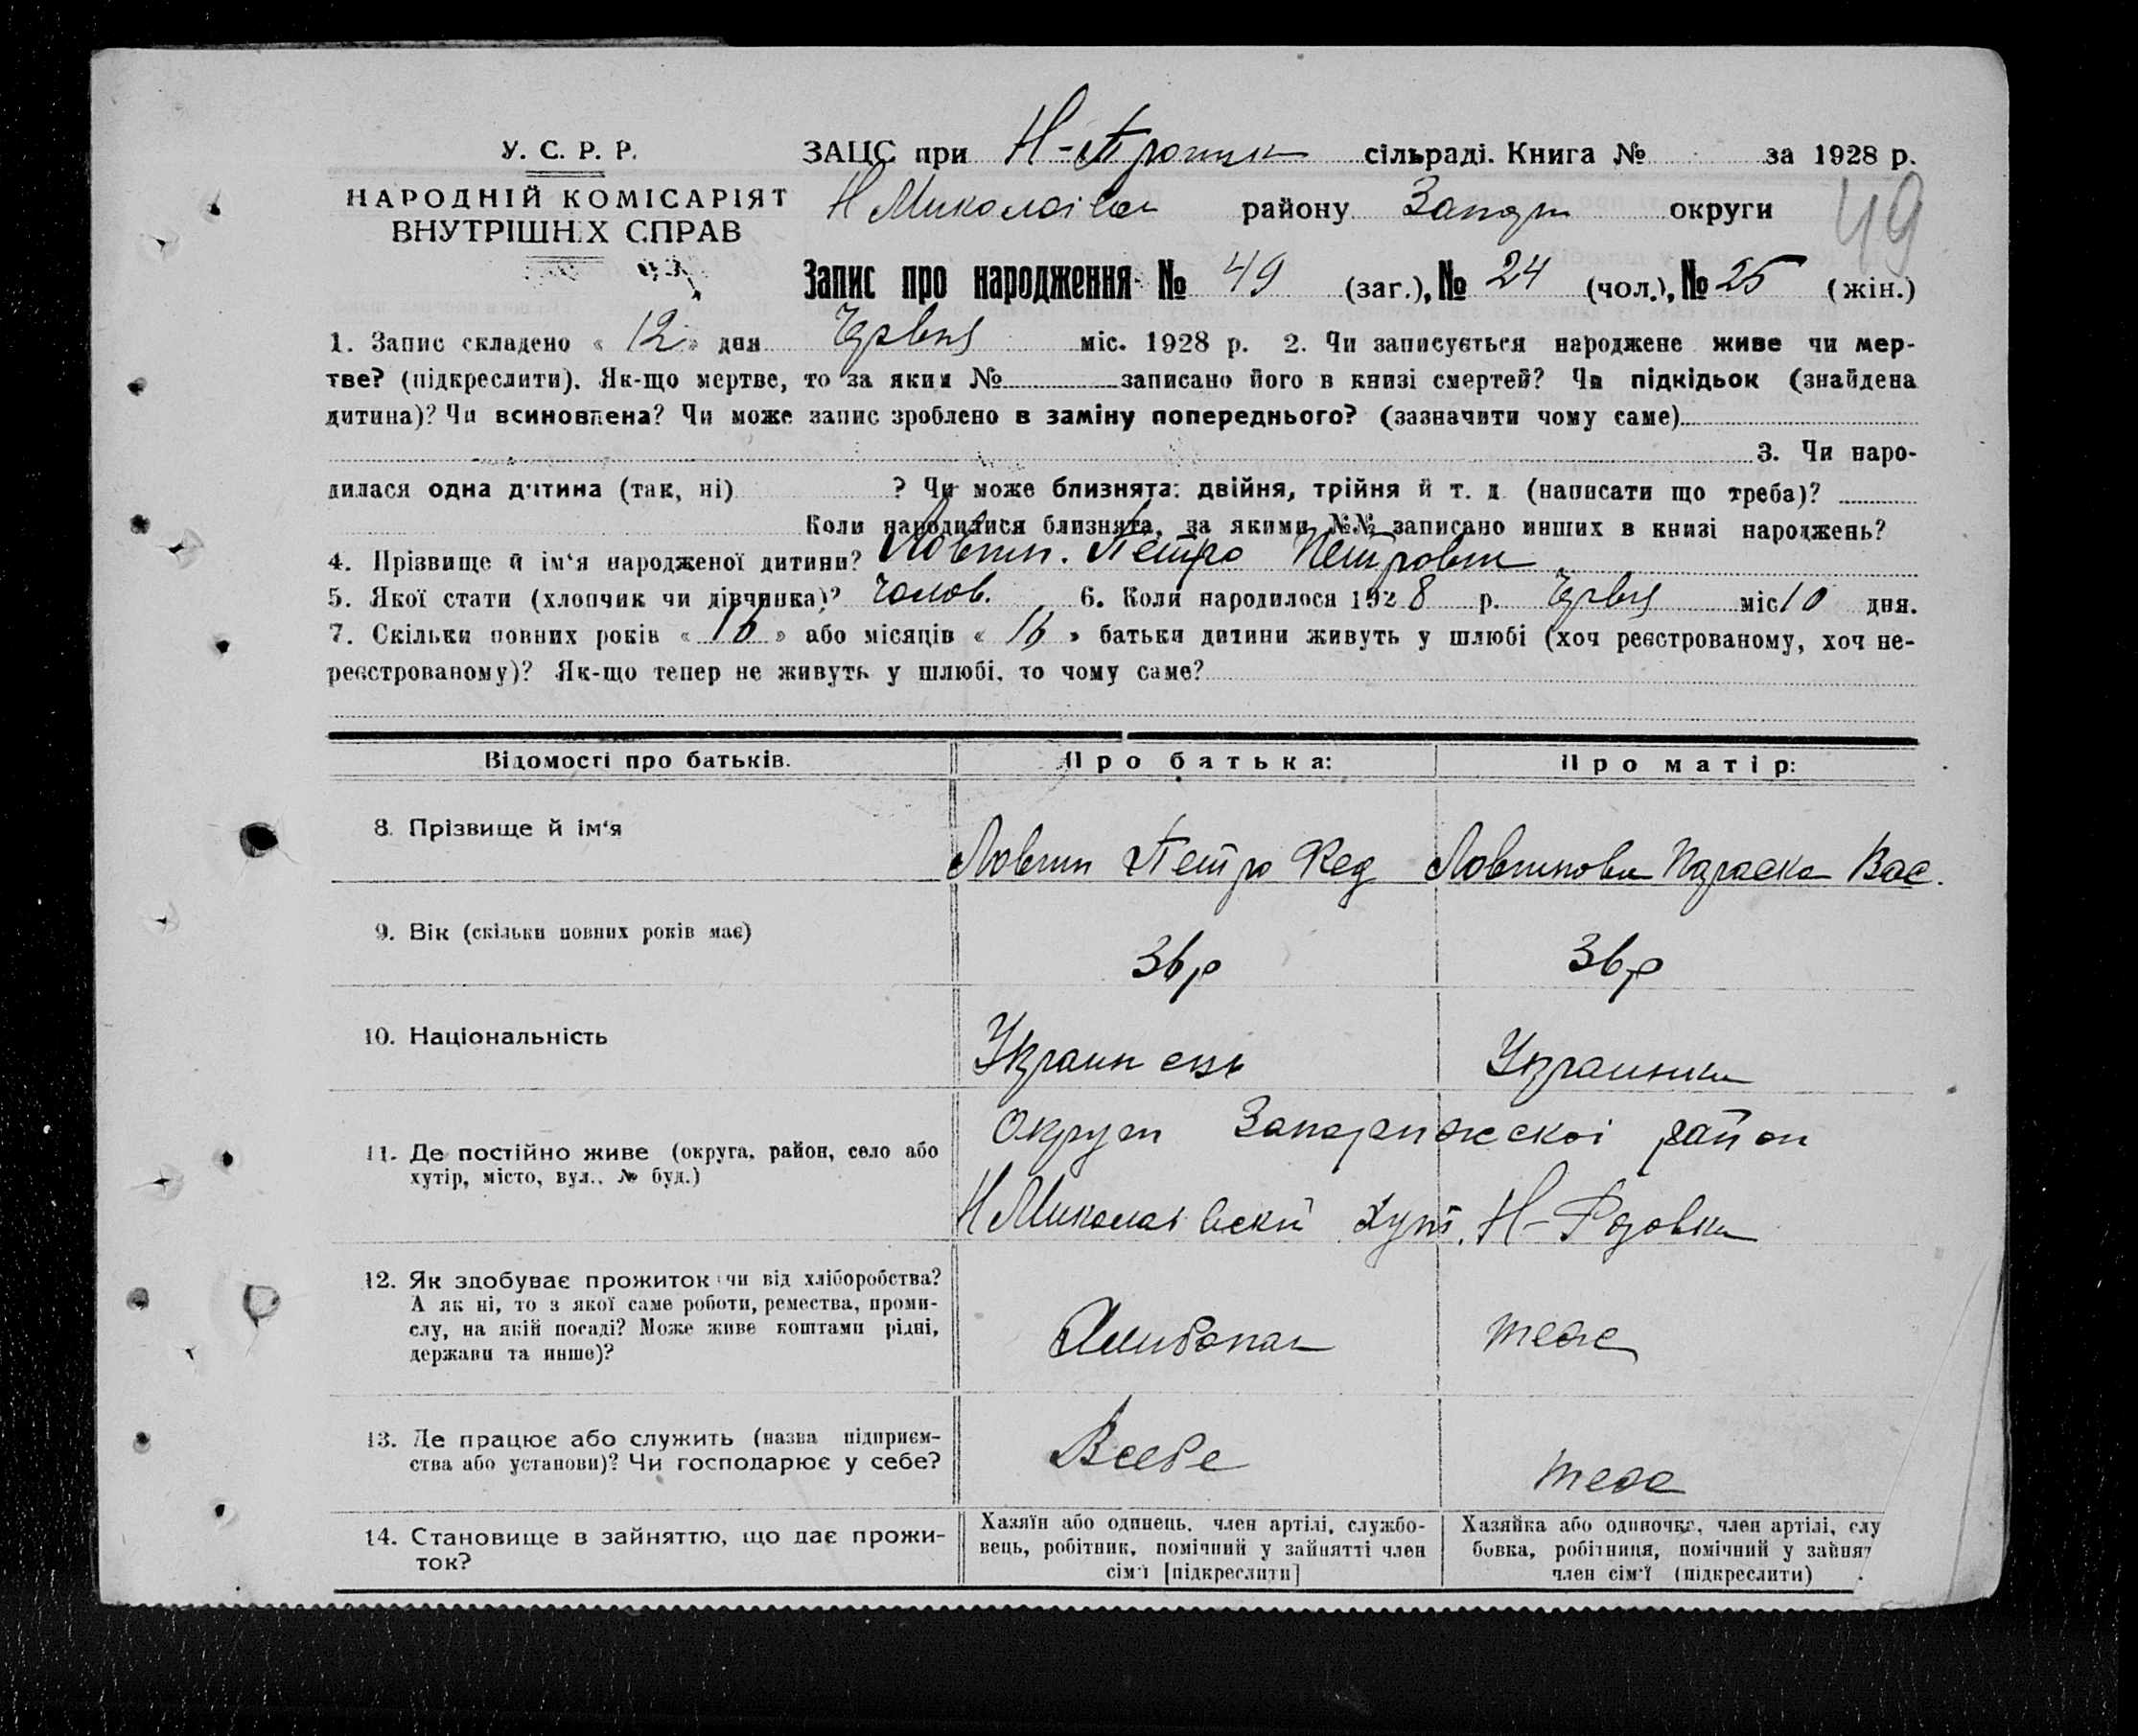 У. С. Р. Р.
НАРОДНІЙ КОМІСАРІЯТ
ВНУТРІШНІХ СПРАВ
ЗАЦС при сільраді. Книга № за 1928 р.
Н Миколаівск району Запор округи
49
Запис про народження № 49 (заг.), № 24 (чол.), № 25 (жін.)
1. Запис складено « 12 » дня Червня міс. 1928 р. 2. Чи записується народжене живе чи мер-
тве? (підкреслити). Як-що мертве, то за яким № записано його в книзі смертей? Чи підкідьок (знайдена
дитина)? Чи всиновлена? Чи може запис зроблено в заміну попереднього? (зазначити чому саме)
3. Чи наро-
дилася одна дитина (так, ні) ? Чи може близнята: двійня, трійня й т. д. (написати що треба)?
Коли народилися близнята, за якими №№ записано инших в книзі народжень?
4. Прізвище й ім'я народженої дитини? Ловчин. Петро Петрович
5. Якої стати (хлопчик чи дівчинка)? Чолов. 6. Коли народилося 1928 р. Червня міс 10 дня.
7. Скільки повних років « 16 » або місяців « » батьки дитини живуть у шлюбі (хоч реєстрованому, хоч не-
реєстрованому)? Як-що тепер не живуть у шлюбі, то чому саме?
Відомості про батьків.
Про батька:
Про матір:
8. Прізвище й ім'я
Ловчин Петро Фед
Ловчинова Параска Вас.
9. Вік (скільки повних років має)
36 р
36 р
10. Національність
Украинець
Украинка
11. Де постійно живе (округа, район, село або
хутір, місто, вул., № буд.)
Округи Запоріжскоі район
Н Миколаівский Хут. Н-
12. Як здобуває прожиток: чи від хліборобства?
А як ні, то з якої саме роботи, ремества, проми-
слу, на якій посаді? Може живе коштами рідні,
держави та инше)?
Хлибопаш
теже
13. Де працює або служить (назва підприєм-
ства або установи)? Чи господарює у себе?
Всебе
теже
14. Становище в зайняттю, що дає прожи-
ток?
Хазяїн або одинець, член артілі, службо-
вець, робітник, помічний у зайнятті член
сім'ї [підкреслити]
Хазяйка або одиночка, член артілі, слу
бовка, робітниця, помічний у зайнят
член сім'ї (підкреслити)